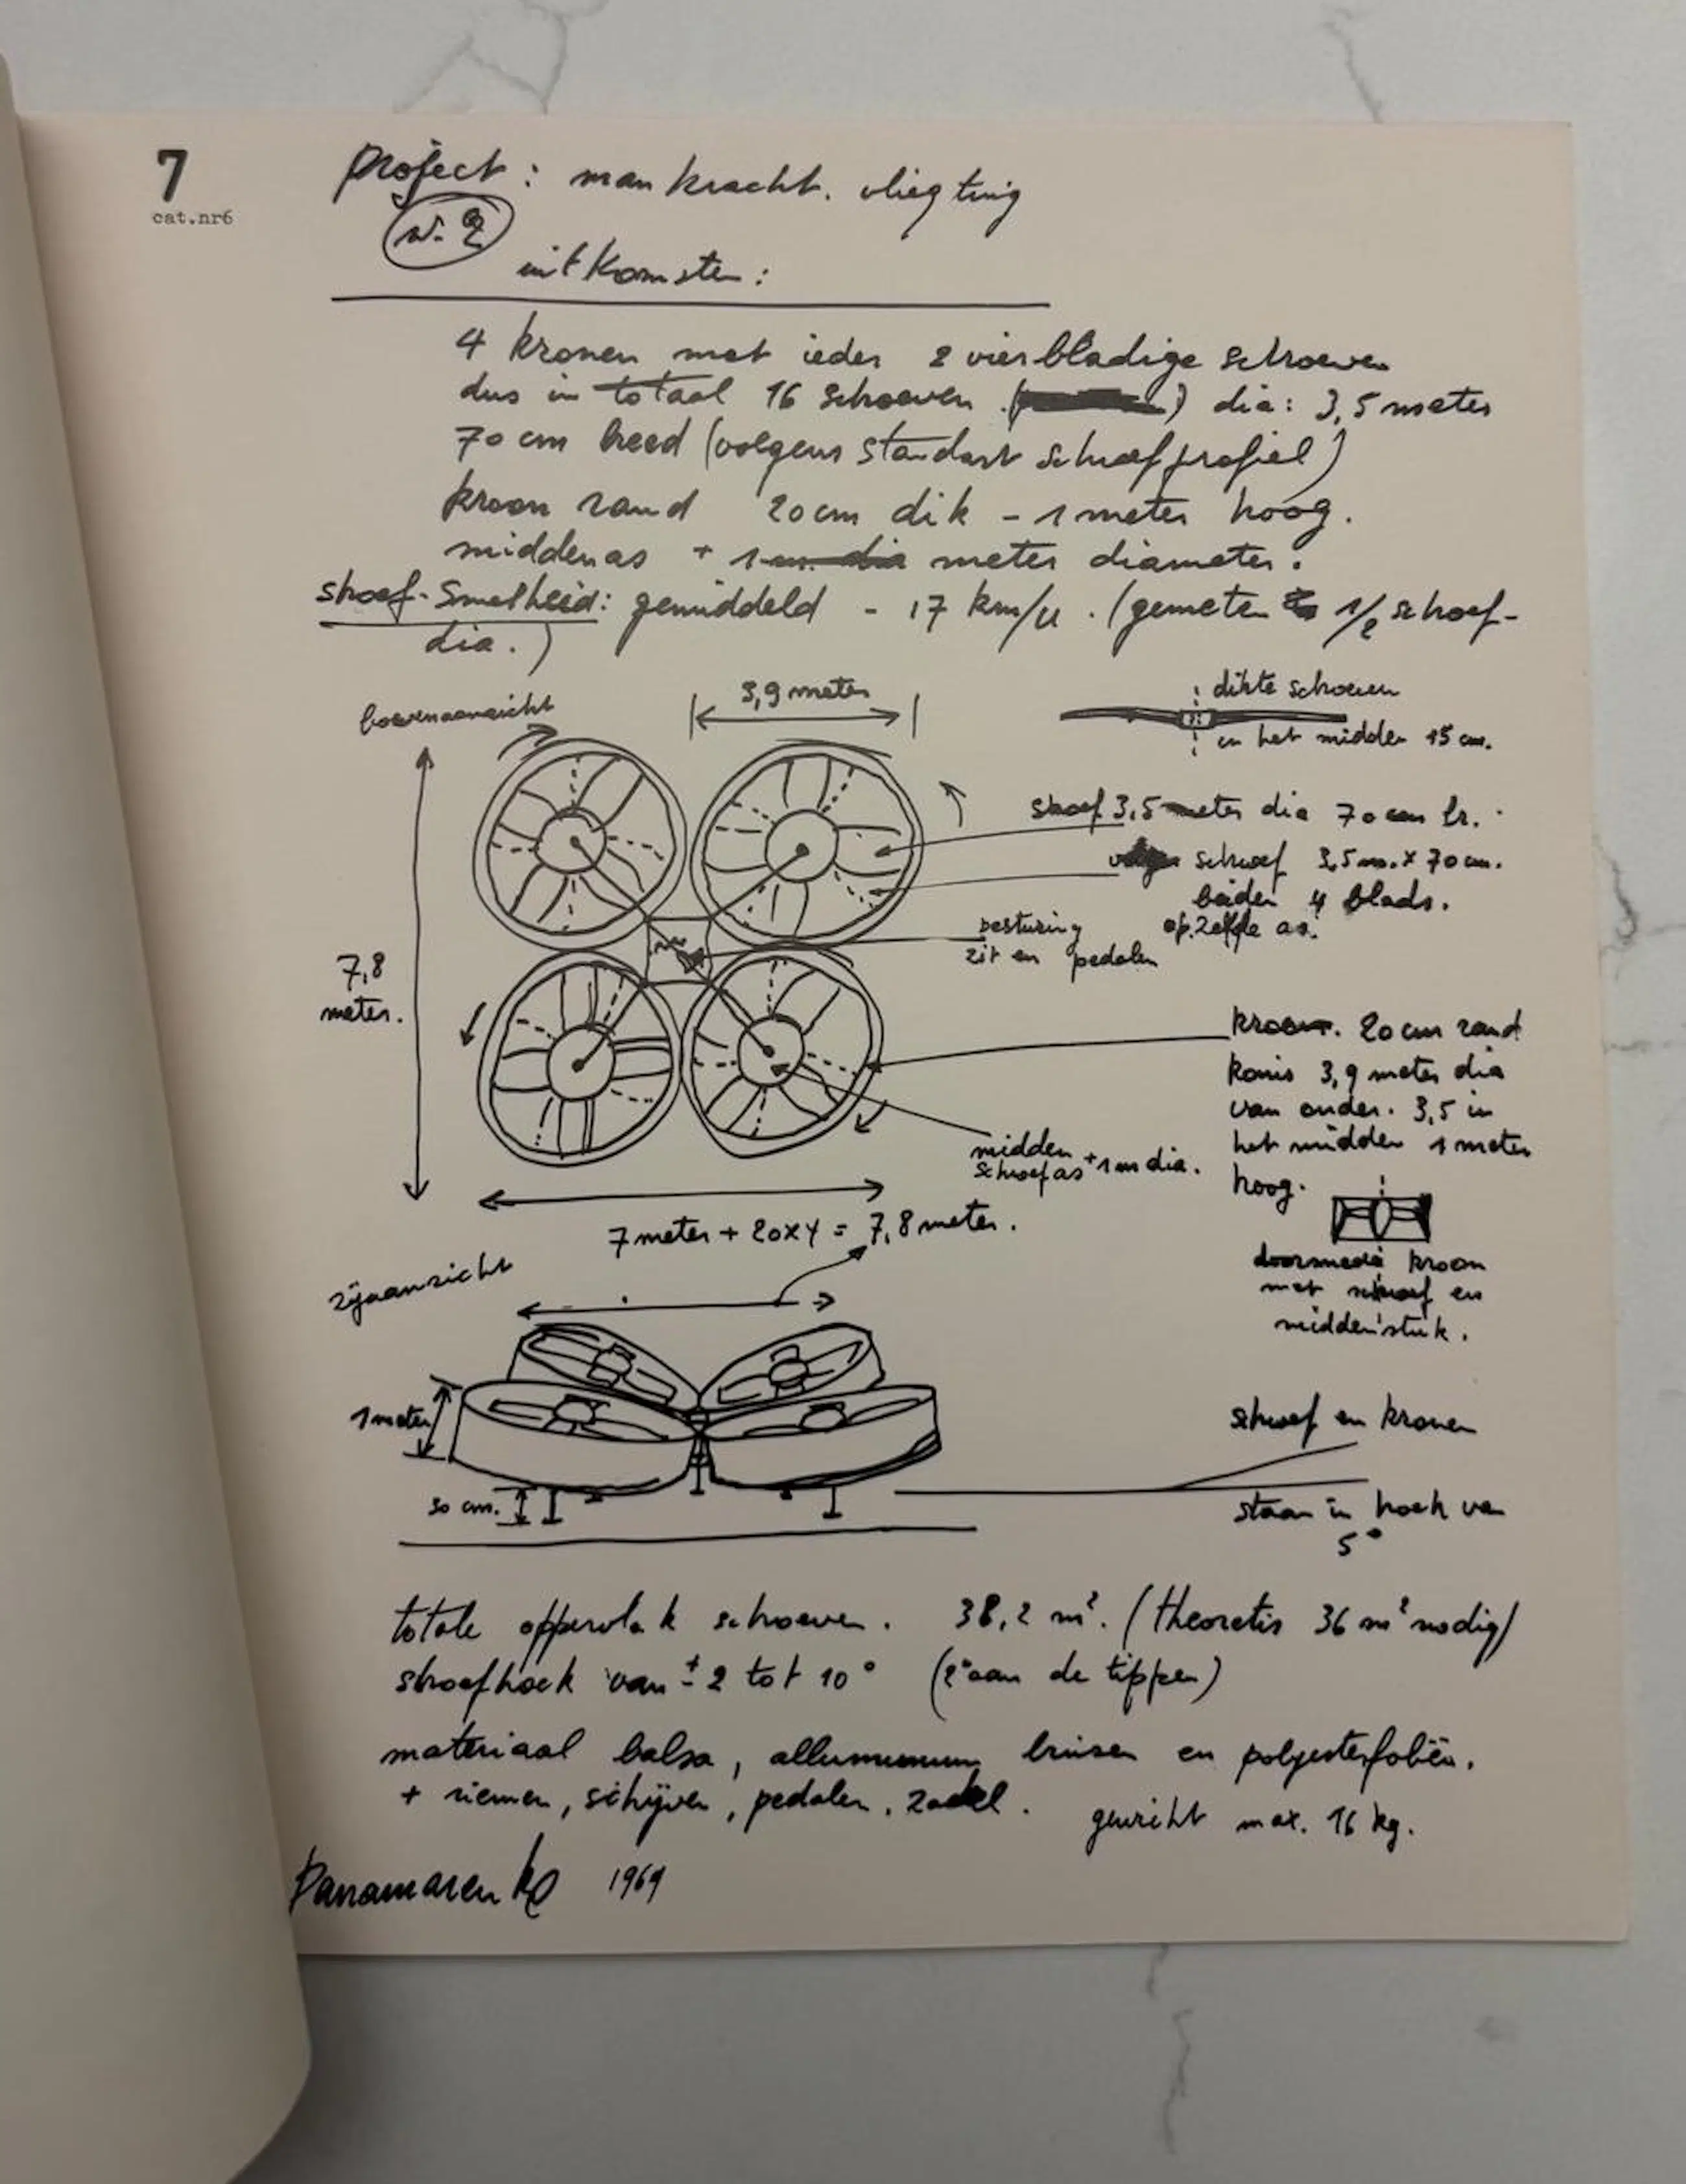 7
cat.nr6
project: mankracht. vliegtuig
nr. 2
uitkomsten:
4 kronen met ieder 2 vierbladige schroeven
dus in totaal 16 schroeven dia: 3,5 meter
70 cm breed (volgens standart schroefprofiel)
kroon rand 20cm dik - 1 meter hoog.
middenas + 1 meter diameter.
shoef-snelheid: gemiddeld - 17 km/u. (gemeten 1/2 schoef-
dia.)
bovenaanzicht
3,9 meter
dikte schroeven
in het midden 15 cm.
shoef 3,5 meter dia 70 cm br.
schroef 3,5 m. x 70 cm.
beiden 4 blads.
op zelfde as.
besturing
zit en pedalen
7,8
meter.
kroon. 20 cm rand
konis 3,9 meter dia
van onder. 3,5 in
het midden 1 meter
hoog.
midden
schroefas + 1 m dia.
7 meter + 20x4 = 7,8 meter.
doorsnede kroon
met schroef en
middenstuk.
zijaanzicht
1 meter
30 cm.
schroef en kronen
staan in hoek van
5°
totale oppervlak schroeven. 38,2 m². (theoretis 36 m² nodig)
shroefhoek van ± 2 tot 10° (2° aan de tippen)
materiaal balsa, allumunium buisen en polyesterfoliën.
+ riemen, schijven, pedalen, zadel. gewicht max. 16 kg.
Panamarenko 1969